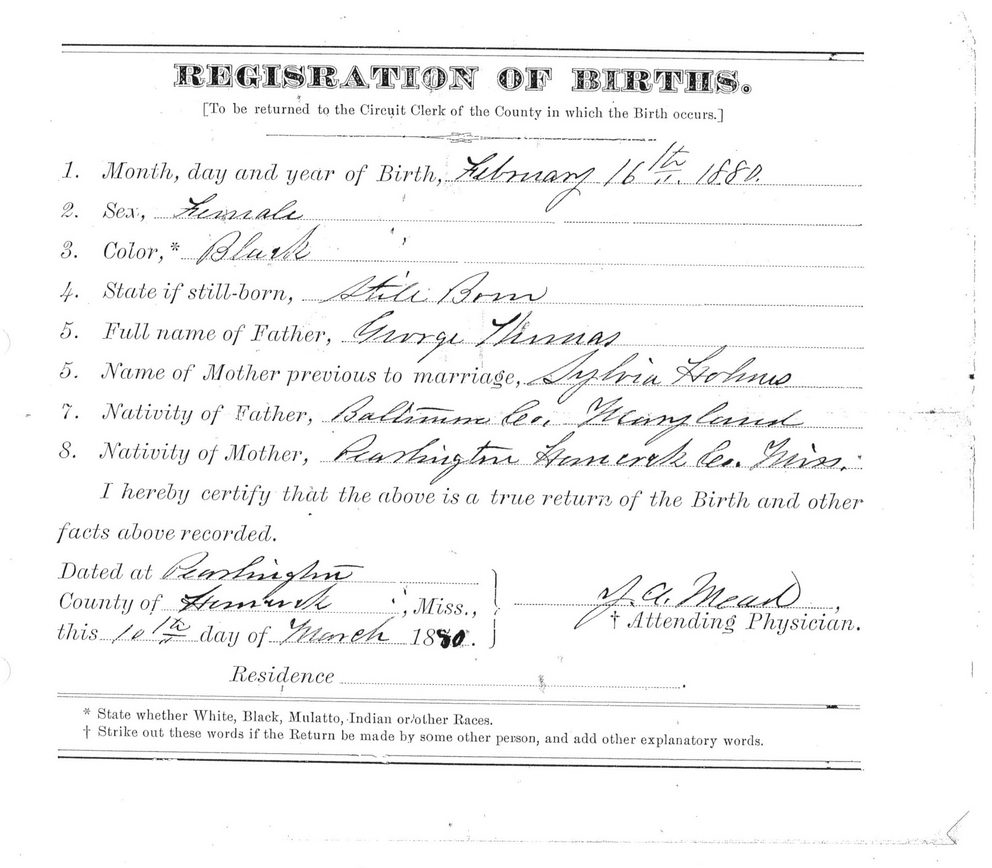 REGISRATION OF BIRTHS.
[To be returned to the Circuit Clerk of the County in which the Birth occurs.]
1. Month, day and year of Birth, February 16th 1880.
2. Sex, Female
3. Color,* Black
4. State if still-born, Still Born
5. Full name of Father, George Thomas
5. Name of Mother previous to marriage, Sylvia Holmes
7. Nativity of Father, Baltimore Co. Maryland
8. Nativity of Mother, Pearlington Hancock Co. Miss.
I hereby certify that the above is a true return of the Birth and other
facts above recorded.
Dated at Pearlington
County of Hancock, Miss.,
this 10th day of March 1880.
J. A. Mead,
† Attending Physician.
Residence
* State whether White, Black, Mulatto, Indian or other Races.
† Strike out these words if the Return be made by some other person, and add other explanatory words.